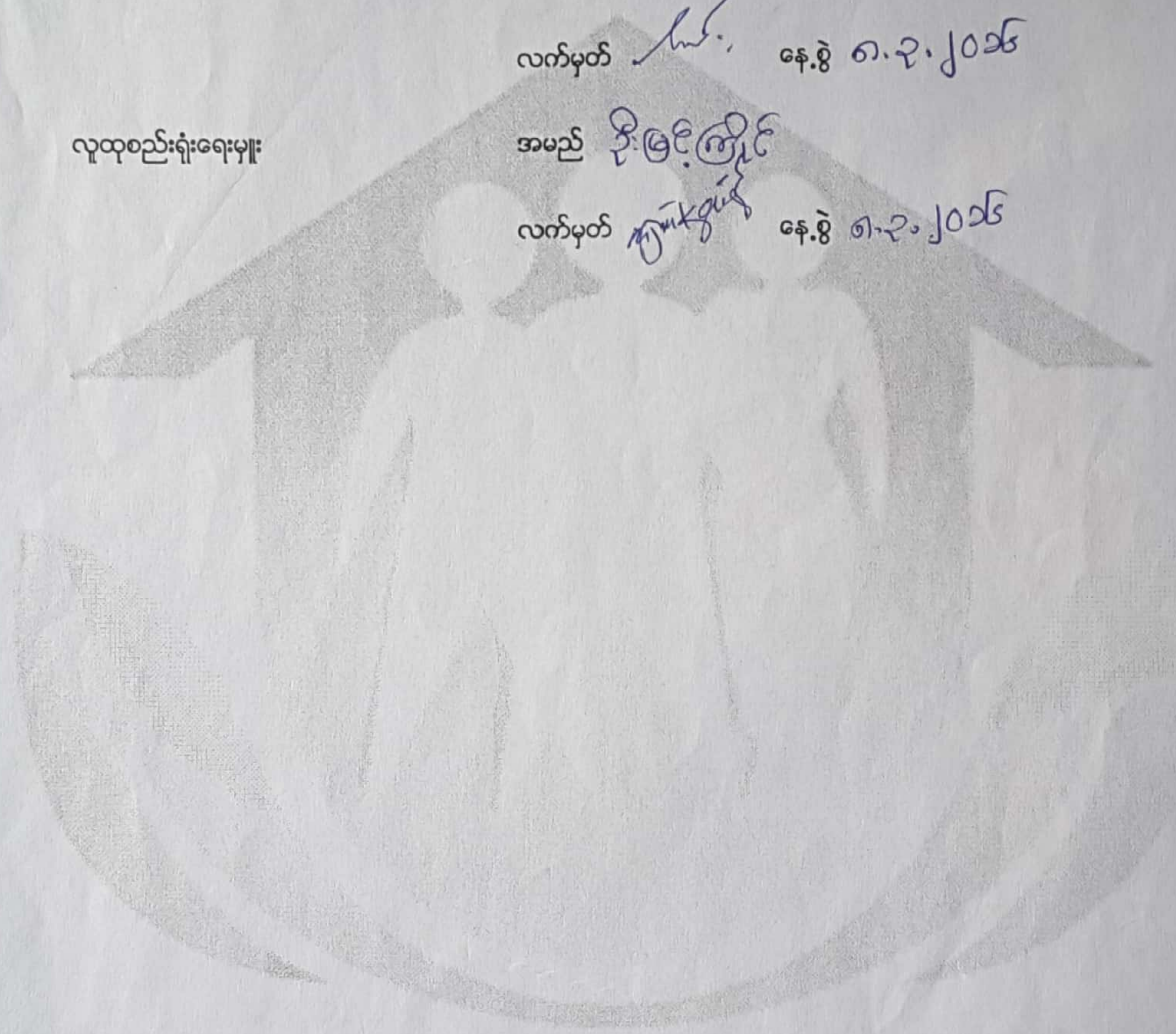 လက်မှတ် နေ့စွဲ ၈.၃.၂၀၁၆
လူထုစည်းရုံးရေးမှူး အမည် ဦးမြင့်ကြိုင်
လက်မှတ် နေ့စွဲ ၈.၃.၂၀၁၆